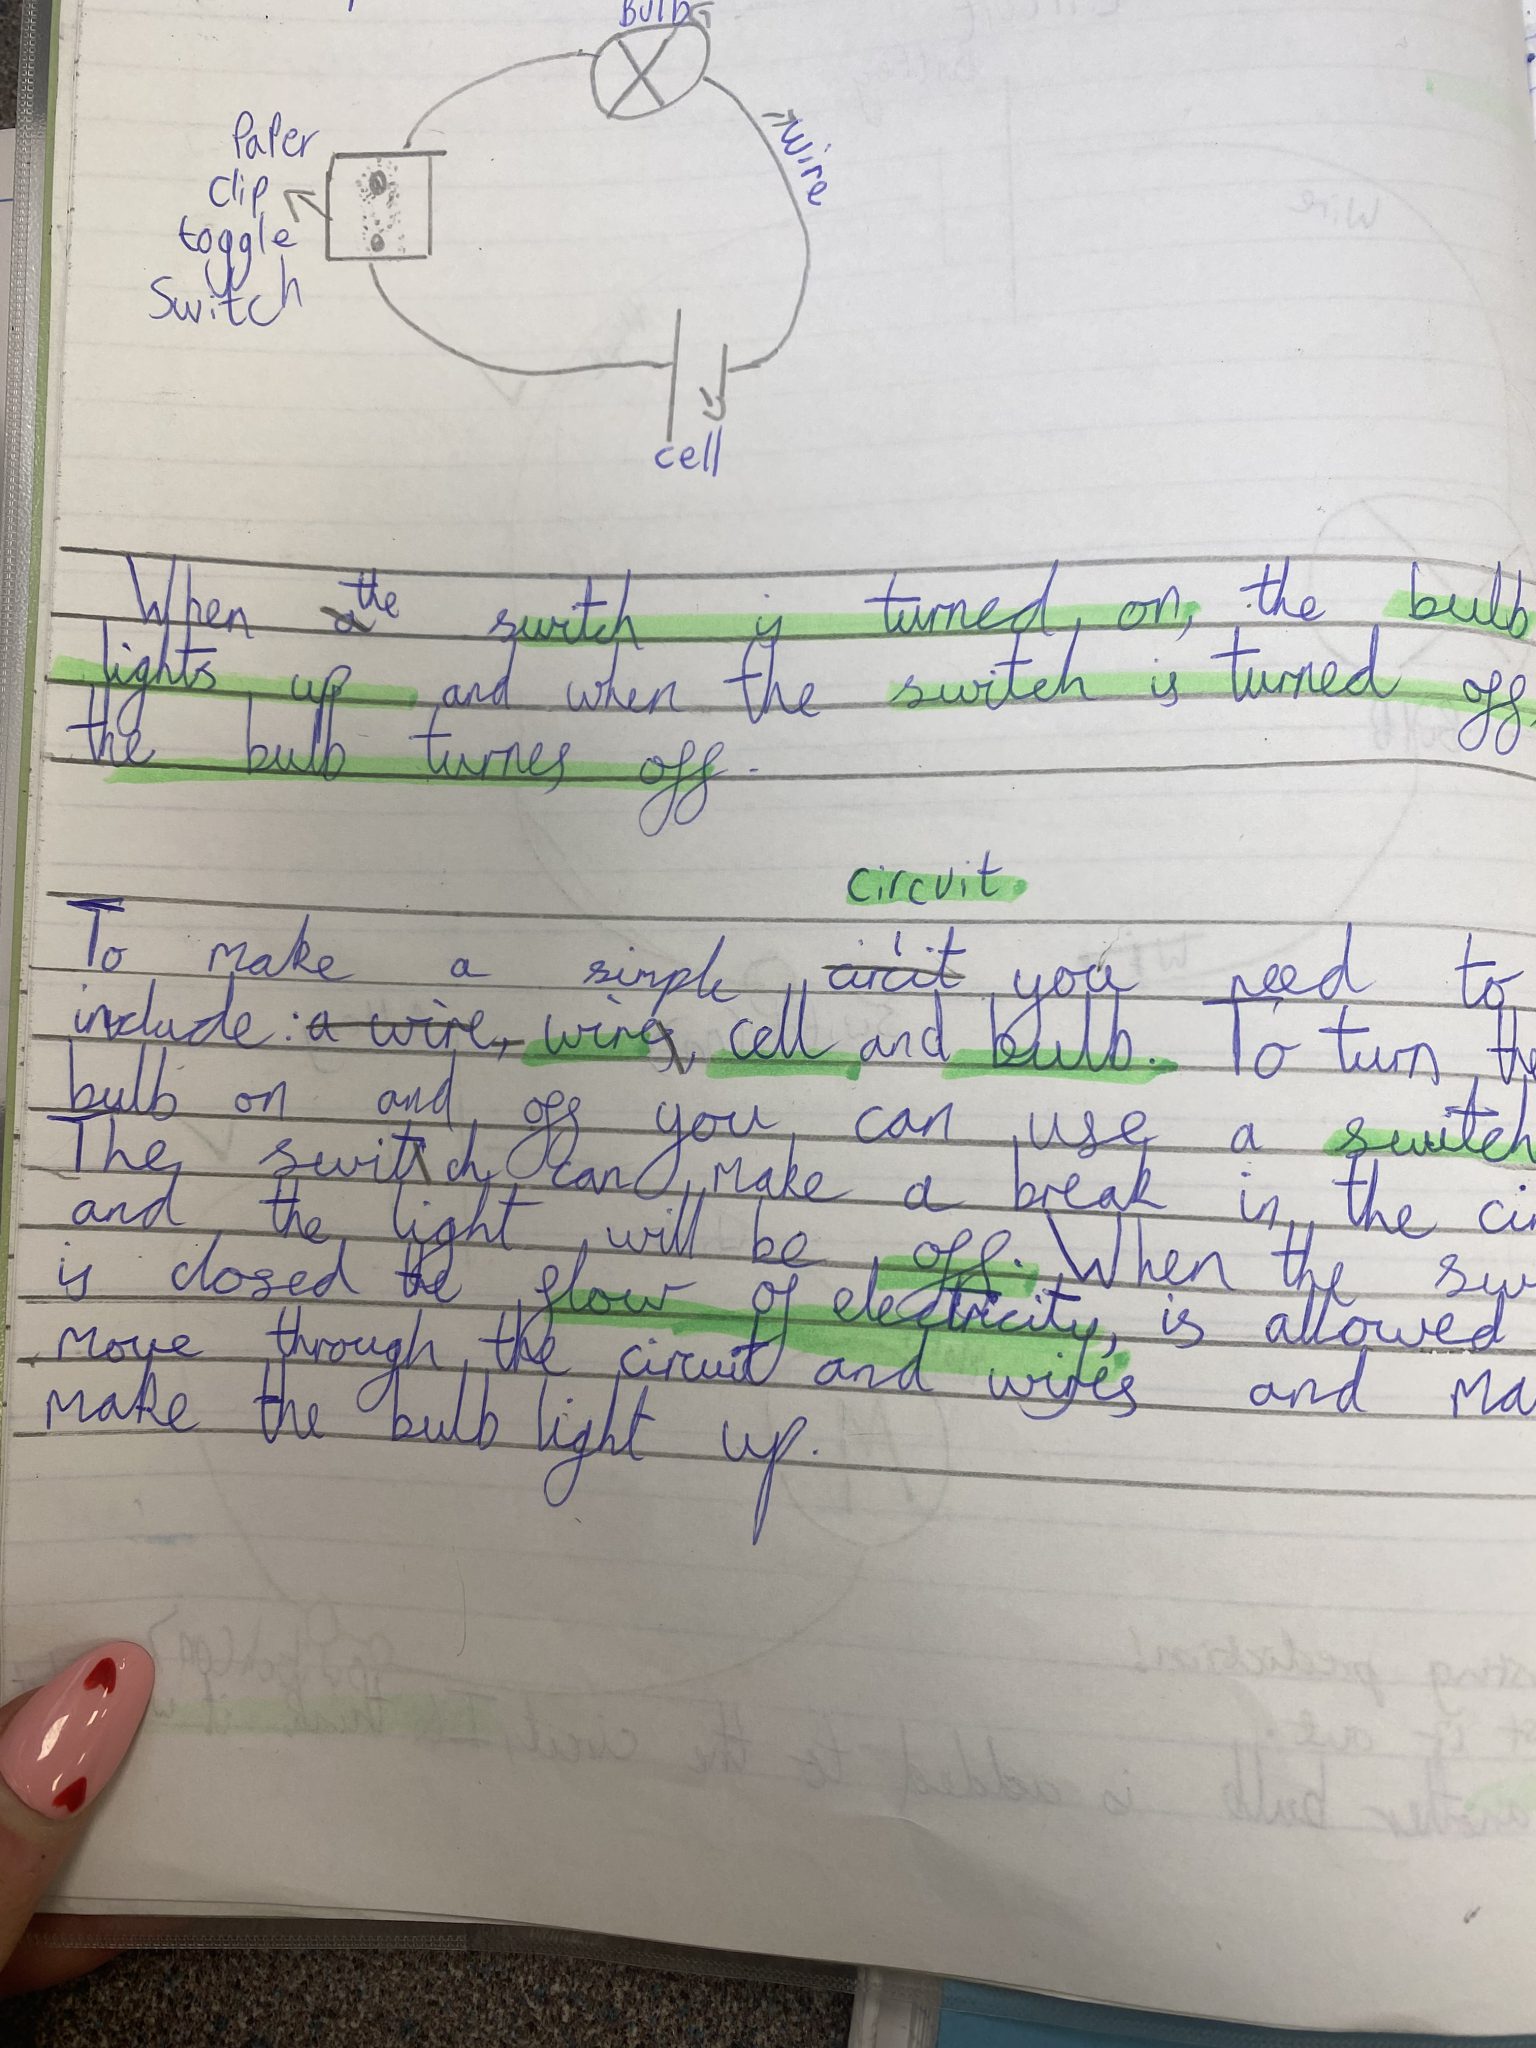 Bulb
Paper
clip
toggle
Switch
wire
cell
When a the switch is turned on, the bulb
lights up and when the switch is turned off,
the bulb turnes off.
circuit.
To make a simple circit you need to
include: a wire, wires, cell and bulb. To turn the
bulb on and off you can use a switch
The switch can make a break in the cir
and the light will be off. When the sw
is closed the flow of electricity, is allowed
move through the circuit and wires and ma
make the bulb light up.